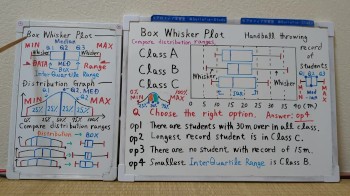 Box Whisker Plot
Median
Q1 Q2 Q3
Whisker
Whisker
MIN
MAX
DATA
MED
Range
Box
InterQuartile Range
Distribution Graph
MIN
Q1
Q2 MED
Q3
MAX
25% 25% 25% 25%
Compare distribution ranges
Distribution
BOX
Box Whisker Plot
Handball throwing
Compare distribution ranges
record of students
Class A
Class B
Class C
Whisker
Whisker
Box
MIN
MAX
0 5 10 15 20 25 30 35 40 (m)
Q Choose the right option. Answer: op4
op1 There are students with 30m over in all class.
op2 Longest record student is in Class C.
op3 There are no student, with record of 15m.
op4 Smallest InterQuartile Range is Class B.